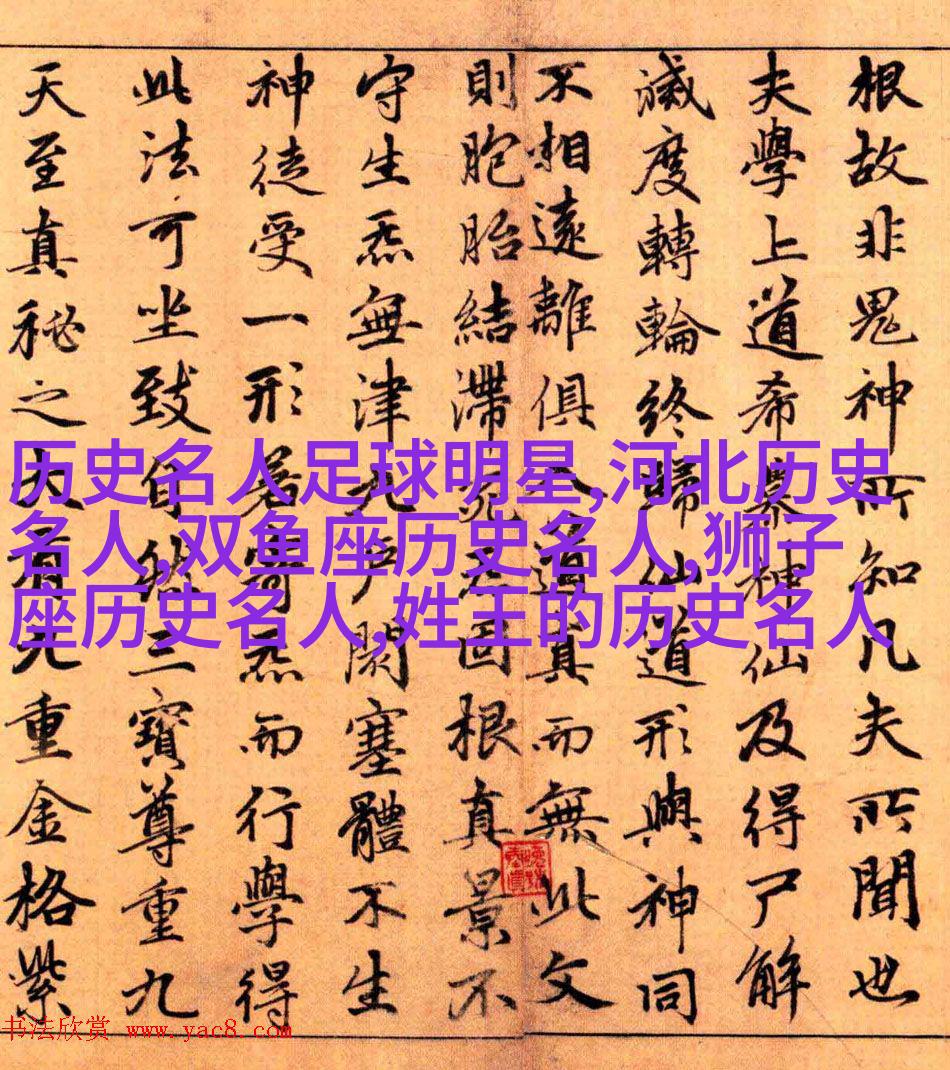 根故非鬼神所知凡夫所聞也
夫學上道希慕神仙及得尸解
滅度轉輪終歸仙道形與神同
不相遠離俱入道真而無此文
則胞胎結滯死炁固根真景不
守生炁無津九戶閉塞體不生
神徒受一形若寄炁而行學得
此法可坐致自然三寶尊重九
天至真秘之大有九重金格紫
历史名人足球明星,河北历史
名人,双鱼座历史名人,狮子
座历史名人,姓王的历史名人
书法欣赏 www.yac8.com